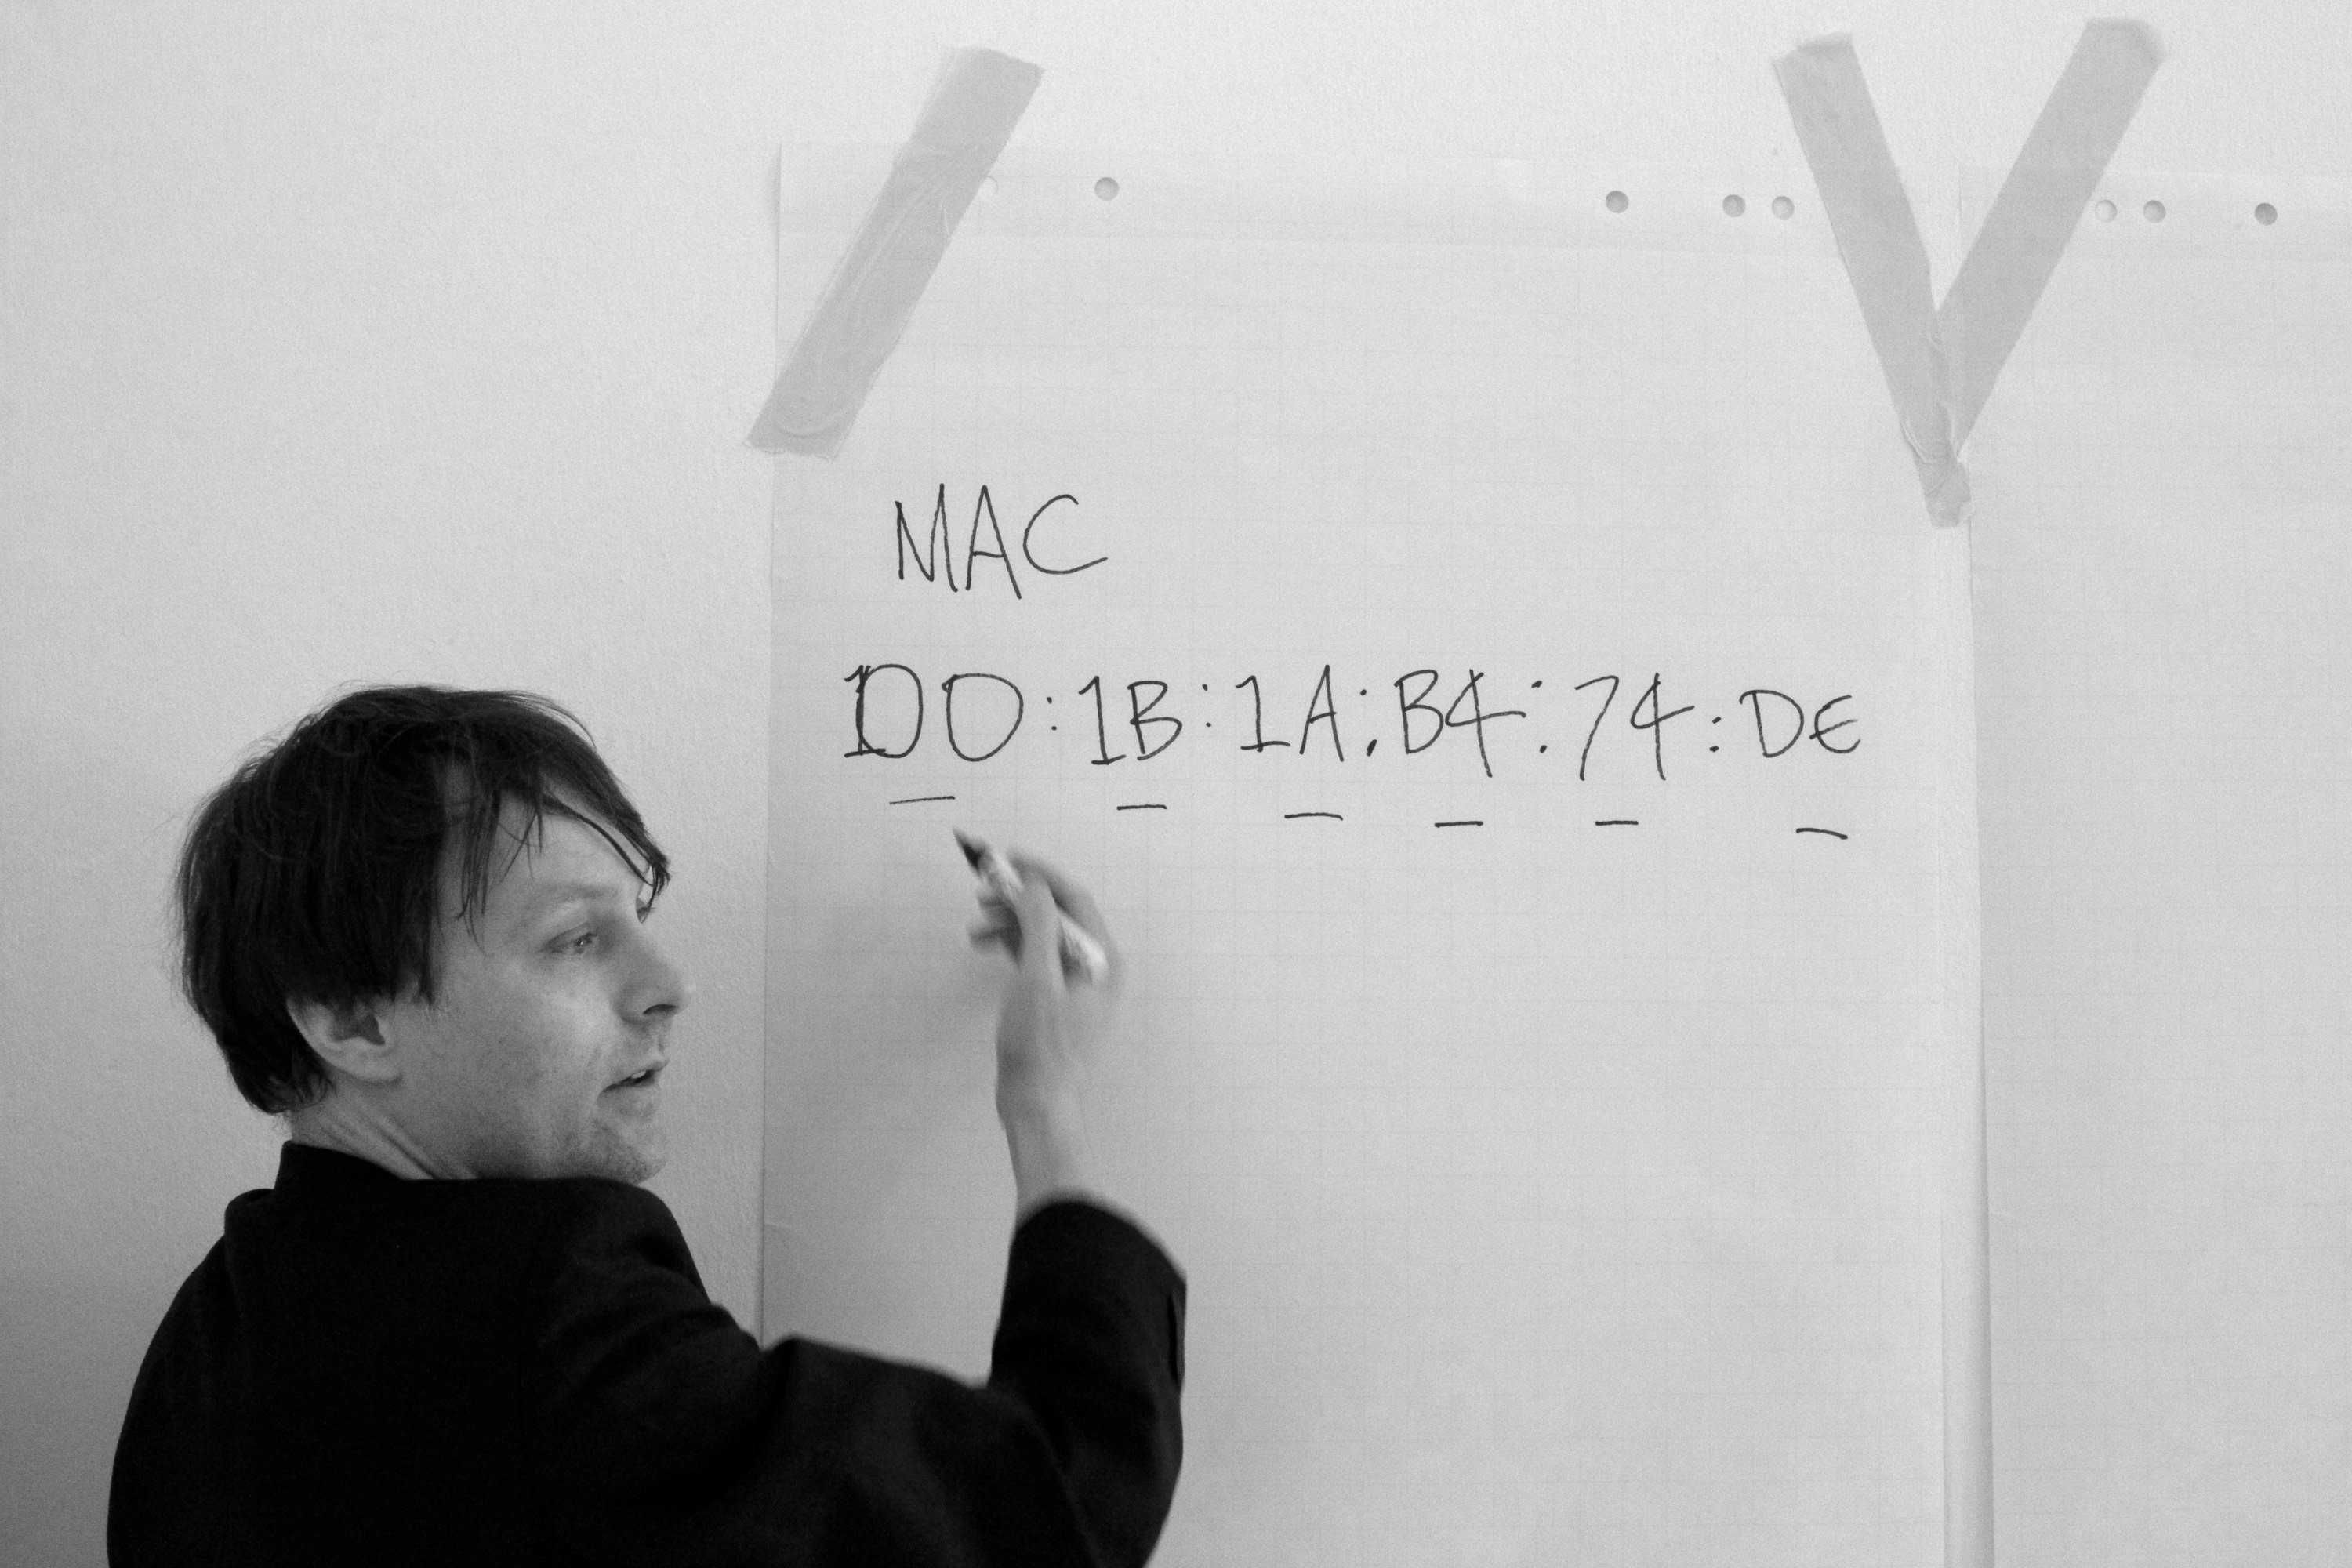 MAC
D0:1B:1A:B4:74:DE